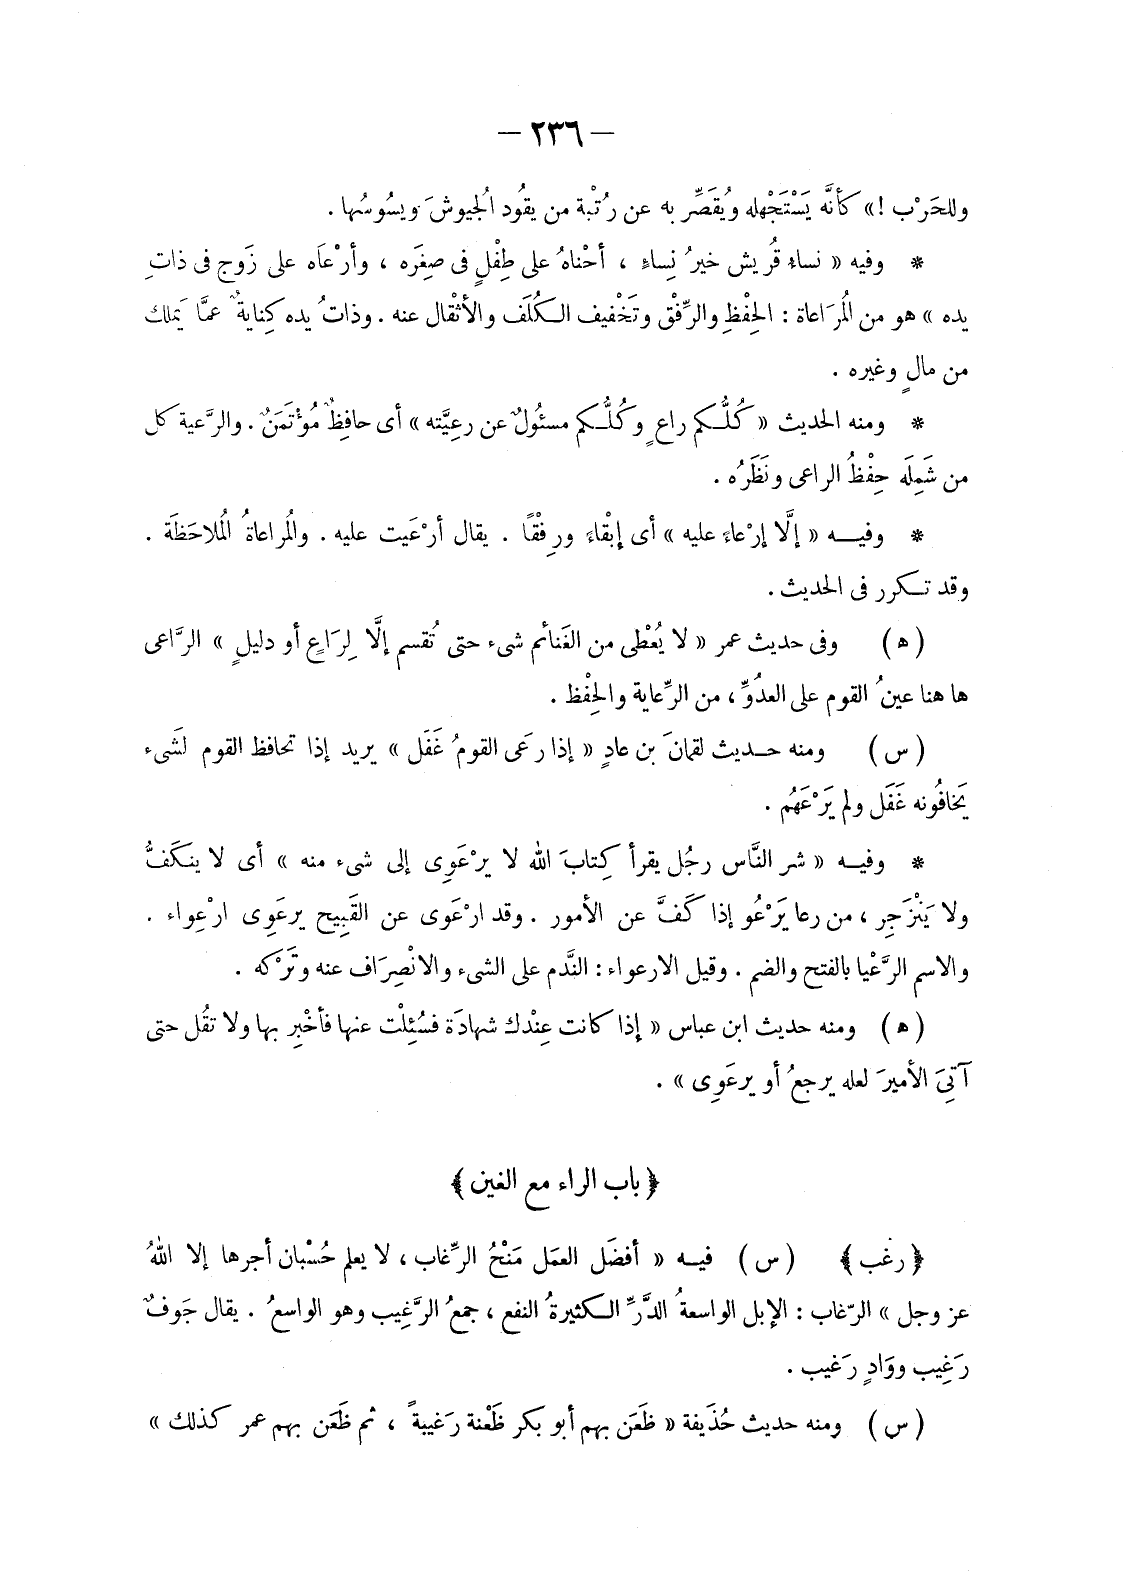 — ٢٣٦ —
وللحَرْب !» كأنَّه يَسْتَجْهله ويُقَصِّر به عن رُتْبة من يقُود الجُيوشَ ويسُوسُها .
* وفيه « نساء قُريش خيرُ نِساءٍ ، أحْناهُ على طِفْلٍ فى صِغَره ، وأرْعَاه على زَوج فى ذاتِ
يده » هو من المُرَاعاة : الحِفْظِ والرِّفْق وتَخْفيف الكُلَف والأثْقال عنه . وذاتُ يده كِنايةٌ عمَّا يَملك
من مالٍ وغيره .
* ومنه الحديث « كُلُّكم راعٍ وكُلُّكم مسئُولٌ عن رعِيَّته » أى حافِظٌ مُؤْتَمَنٌ . والرَّعية كل
من شَمِلَه حِفْظُ الراعى ونَظَرُه .
* وفيه « إلَّا إرْعاءً عليه » أى إبْقاءً ورِفْقًا . يقال أرْعَيت عليه . والمُراعاةُ المُلاحَظَة .
وقد تكرر فى الحديث .
( ه ) وفى حديث عمر « لا يُعْطى من الغَنائم شىء حتى تُقسم إلَّا لِرَاعٍ أو دليلٍ » الرَّاعى
ها هنا عينُ القوم على العدُوِّ ، من الرِّعاية والحِفْظ .
( س ) ومنه حديث لقمانَ بن عادٍ « إذا رعَى القومُ غَفَل » يريد إذا تحافظ القوم لشَىء
يَخافُونه غَفَل ولم يَرْعَهُم .
* وفيه « شر النَّاس رجُل يقرأ كِتابَ الله لا يرْعَوِى إلى شىء منه » أى لا ينكَفُّ
ولا يَنْزَجِر ، من رعا يَرْعُو إذا كَفَّ عن الأمور . وقد ارْعَوى عن القَبِيح يرعَوِى ارْعِواء .
والاسم الرَّعْيا بالفتح والضم . وقيل الارعواء : النَّدم على الشىء والانْصِرَاف عنه وتَرْكه .
( ه ) ومنه حديث ابن عباس « إذا كانت عِنْدك شهادَة فسُئِلْت عنها فأخْبِر بها ولا تقُل حتى
آتىَ الأميرَ لعله يرجعُ أو يرعَوِى » .
﴿ باب الراء مع الغين ﴾
﴿ رغب ﴾ ( س ) فيه « أفضَل العمَل مَنْحُ الرِّغاب ، لا يعلم حُسْبان أجرها إلا اللهُ
عز وجل » الرّغاب : الإبل الواسعةُ الدَّرِّ الكثيرةُ النفع ، جمعُ الرَّغِيب وهو الواسعُ . يقال جَوفٌ
رَغِيب ووَادٍ رَغيب .
( س ) ومنه حديث حُذَيفة « ظَعَن بهم أبو بكر ظَعْنة رَغيبةً ، ثم ظَعَن بهم عمر كذلك »